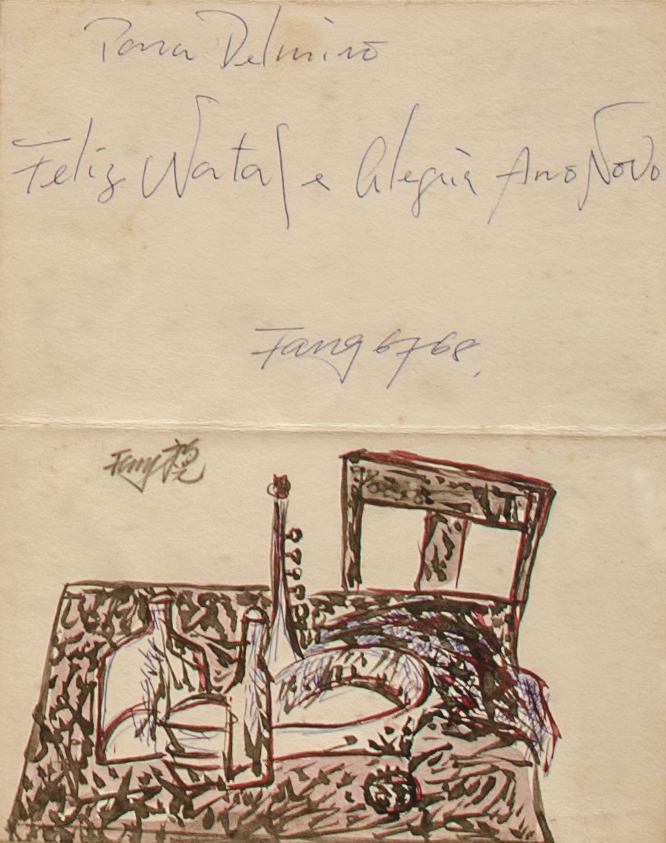 Para Delmiro
Feliz Natal e Alegria Ano Novo
Fang 67 68.
Fang